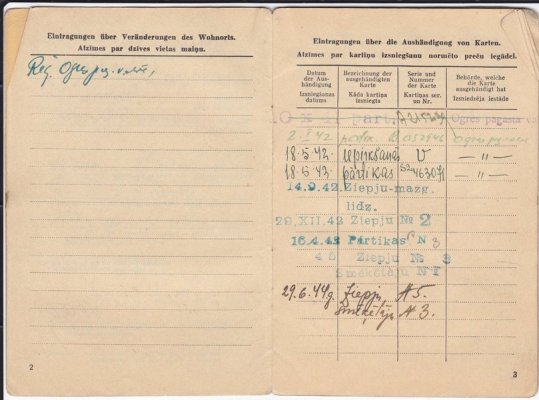 Eintragungen über Veränderungen des Wohnorts.
Atzīmes par dzīves vietas maiņu.
Reģ. Ogres pag. valdē,
2
Eintragungen über die Aushändigung von Karten.
Atzīmes par kartiņu izsniegšanu normēto preču iegādei.
Datum der Aushändigung Izsniegšanas datums
Bezeichnung der ausgehändigten Karte Kāda kartiņa izsniegta
Serie und Nummer der Karte Kartiņas ser. un Nr.
Behörde, welche die Karte ausgehändigt hat Izsniedzēja iestāde
Ogres pagasta
2. I 42 pārtik. B 052946
18.5.42. iepirkšanās V — " —
18.5.43. pārtikas 463071 — " —
14.9.42. Ziepju-mazg.
lidz.
29.XII.42 Ziepju № 2
16.4.43 Pārtikas N 3
4 5 Ziepju № 3
Smēķētāju N I
29.6.44g. Ziepju N 5.
Smēķētāju N 3.
3